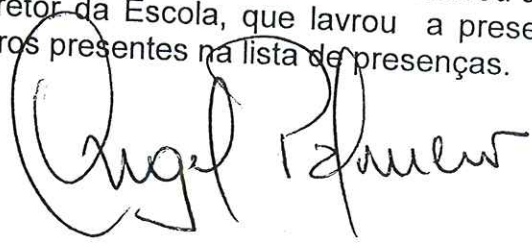 retor da Escola, que lavrou a prese
ros presentes na lista de presenças.
Angel